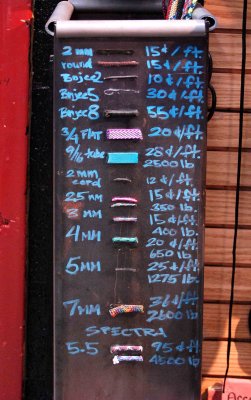 2 mm 15¢/ft.
round 15¢/ft.
Bojee2 10¢/ft
Bojee5 30¢/ft.
Bojee8 55¢/ft.
3/4 FLAT 20¢/ft.
9/16 tube 28¢/ft.
2500 lb.
2 mm
cord 12¢/ft.
2.5 MM 15¢/ft.
350 lb.
3 MM 15¢/ft.
400 lb.
4 MM 20¢/ft.
650 lb
5 MM 25¢/ft.
1275 lb.
7 MM 36¢/ft
2600 lb
SPECTRA
5.5 95¢/ft
4500 lb